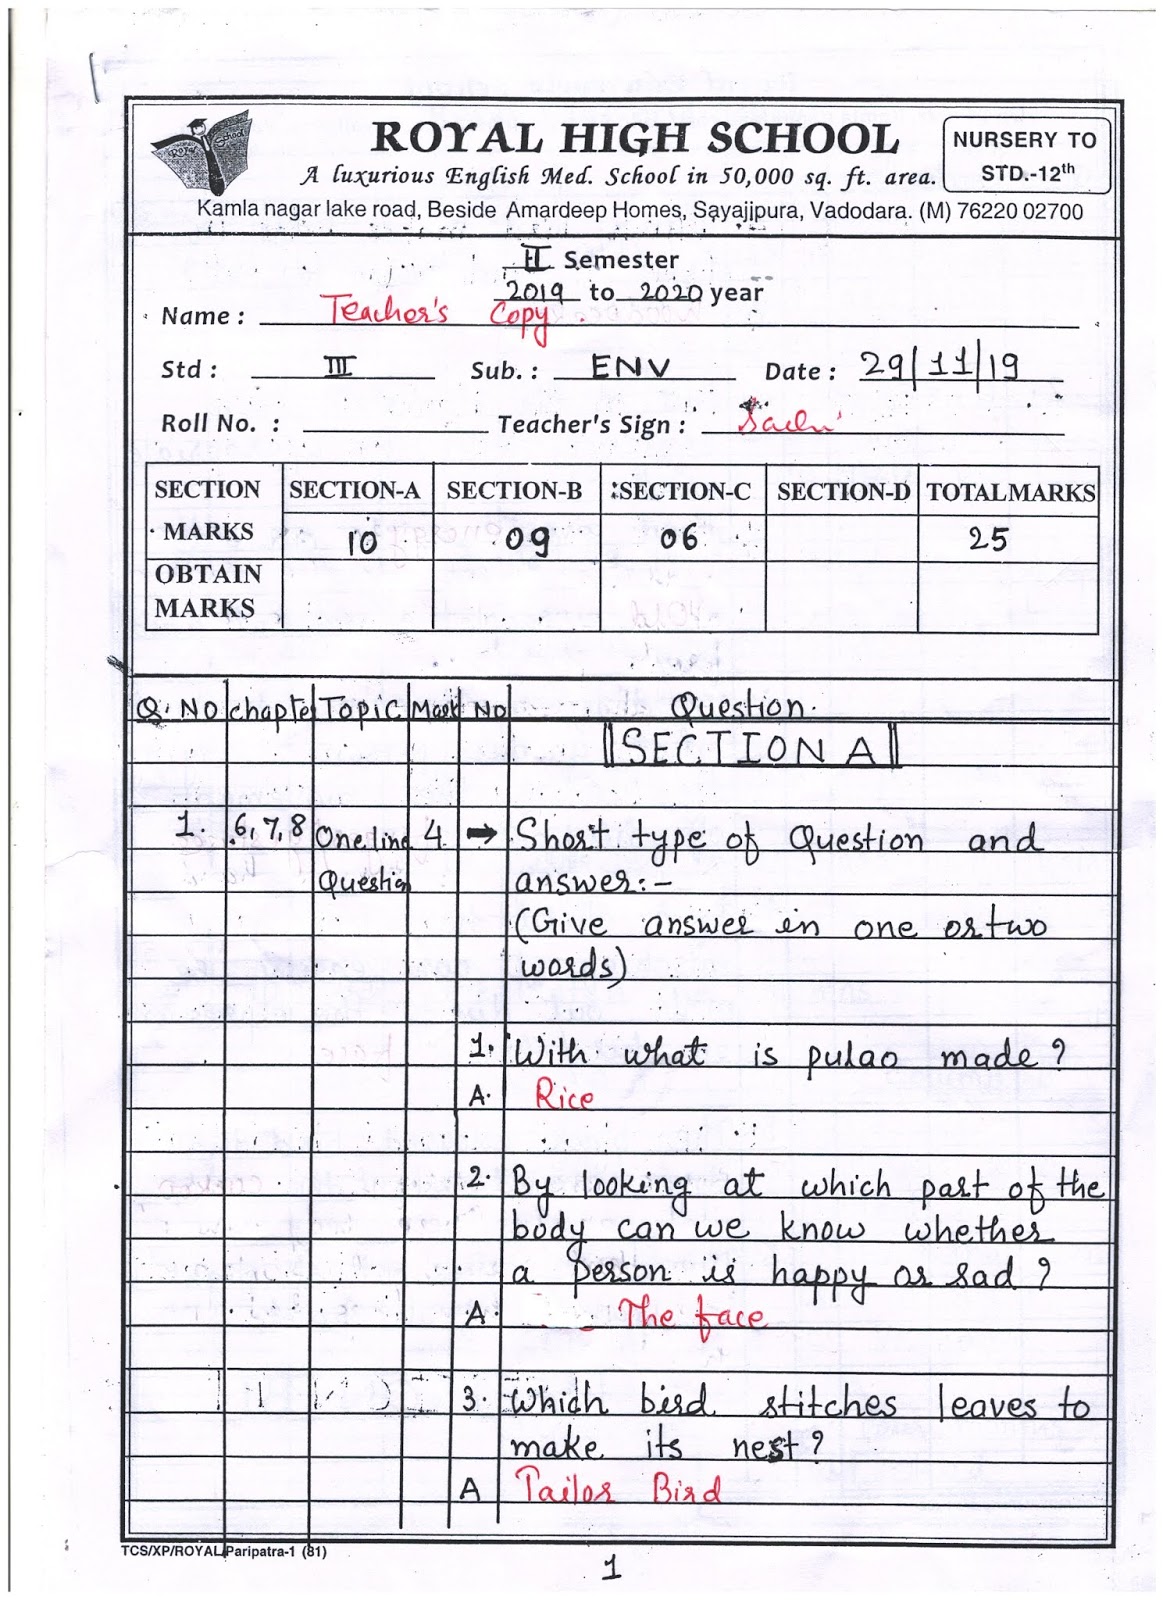 Royal School
ROYAL HIGH SCHOOL
A luxurious English Med. School in 50,000 sq. ft. area.
NURSERY TO
STD.-12th
Kamla nagar lake road, Beside Amardeep Homes, Sayajipura, Vadodara. (M) 76220 02700
II Semester
2019 to 2020 year
Name : Teacher's Copy.
Std : III Sub. : ENV Date : 29/11/19
Roll No. : Teacher's Sign :
SECTION SECTION-A SECTION-B SECTION-C SECTION-D TOTAL MARKS
MARKS 10 09 06 25
OBTAIN
MARKS
Q. NO chapte Topic Mark No Question.
SECTION A
1. 6,7,8 One line 4 → Short type of Question and
Question answer:-
(Give answer in one or two
words)
1. With what is pulao made?
A. Rice
2. By looking at which part of the
body can we know whether
a person is happy or sad?
A. The face
3. Which bird stitches leaves to
make its nest?
A Tailor Bird
TCS/XP/ROYAL/Paripatra-1 (81)
1